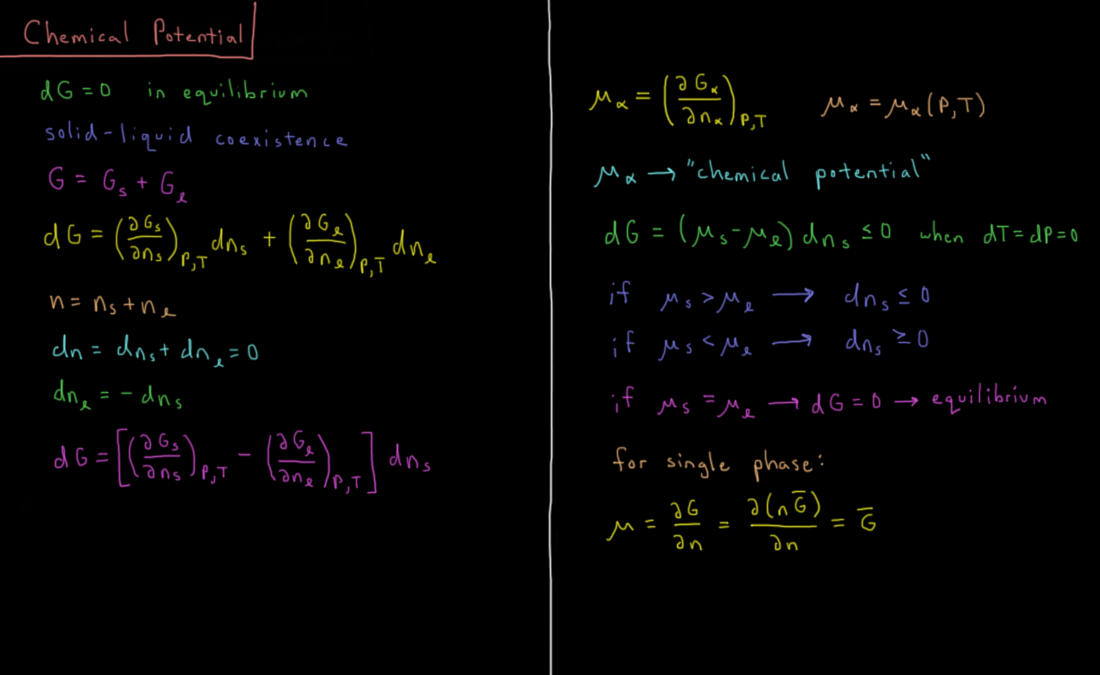 Chemical Potential
dG = 0 in equilibrium
solid-liquid coexistence
G = G_s + G_ℓ
dG = (∂G_s/∂n_s)_{P,T} dn_s + (∂G_ℓ/∂n_ℓ)_{P,T} dn_ℓ
n = n_s + n_ℓ
dn = dn_s + dn_ℓ = 0
dn_ℓ = - dn_s
dG = [(∂G_s/∂n_s)_{P,T} - (∂G_ℓ/∂n_ℓ)_{P,T}] dn_s
μ_α = (∂G_α/∂n_α)_{P,T} μ_α = μ_α(P,T)
μ_α → "chemical potential"
dG = (μ_s - μ_ℓ) dn_s ≤ 0 when dT = dP = 0
if μ_s > μ_ℓ → dn_s ≤ 0
if μ_s < μ_ℓ → dn_s ≥ 0
if μ_s = μ_ℓ → dG = 0 → equilibrium
for single phase:
μ = ∂G/∂n = ∂(nG̅)/∂n = G̅